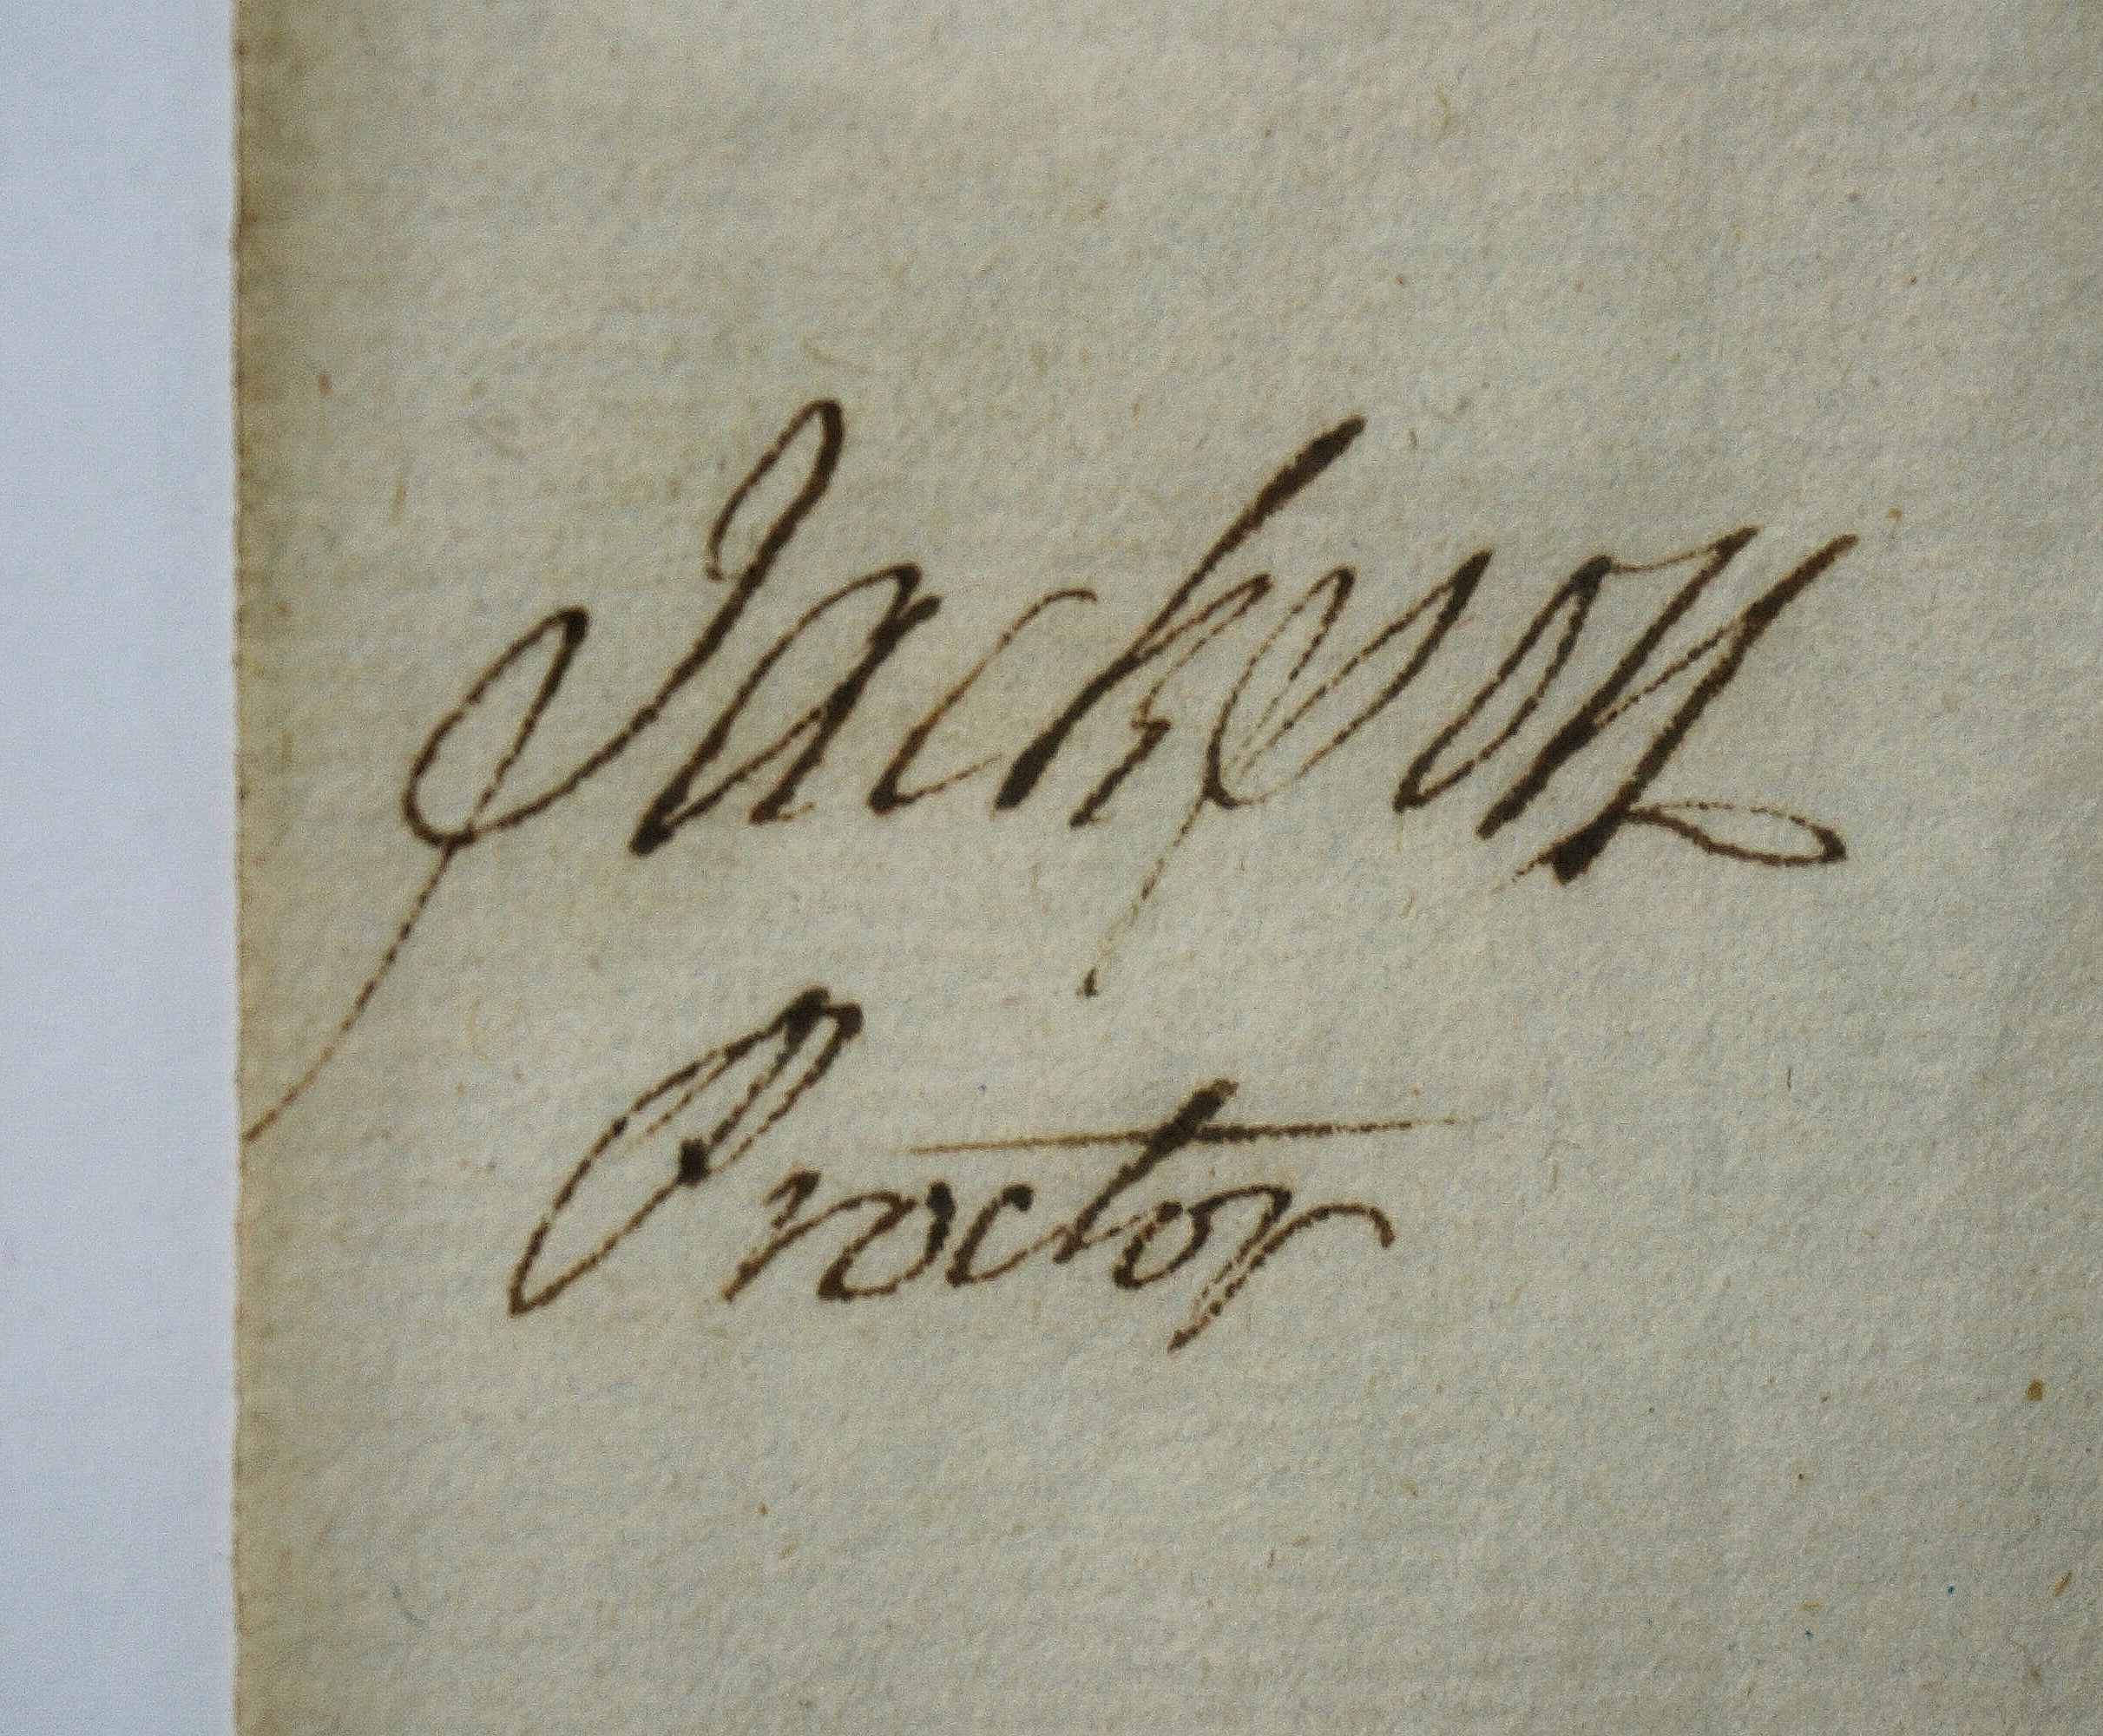 Jackson
Proctor